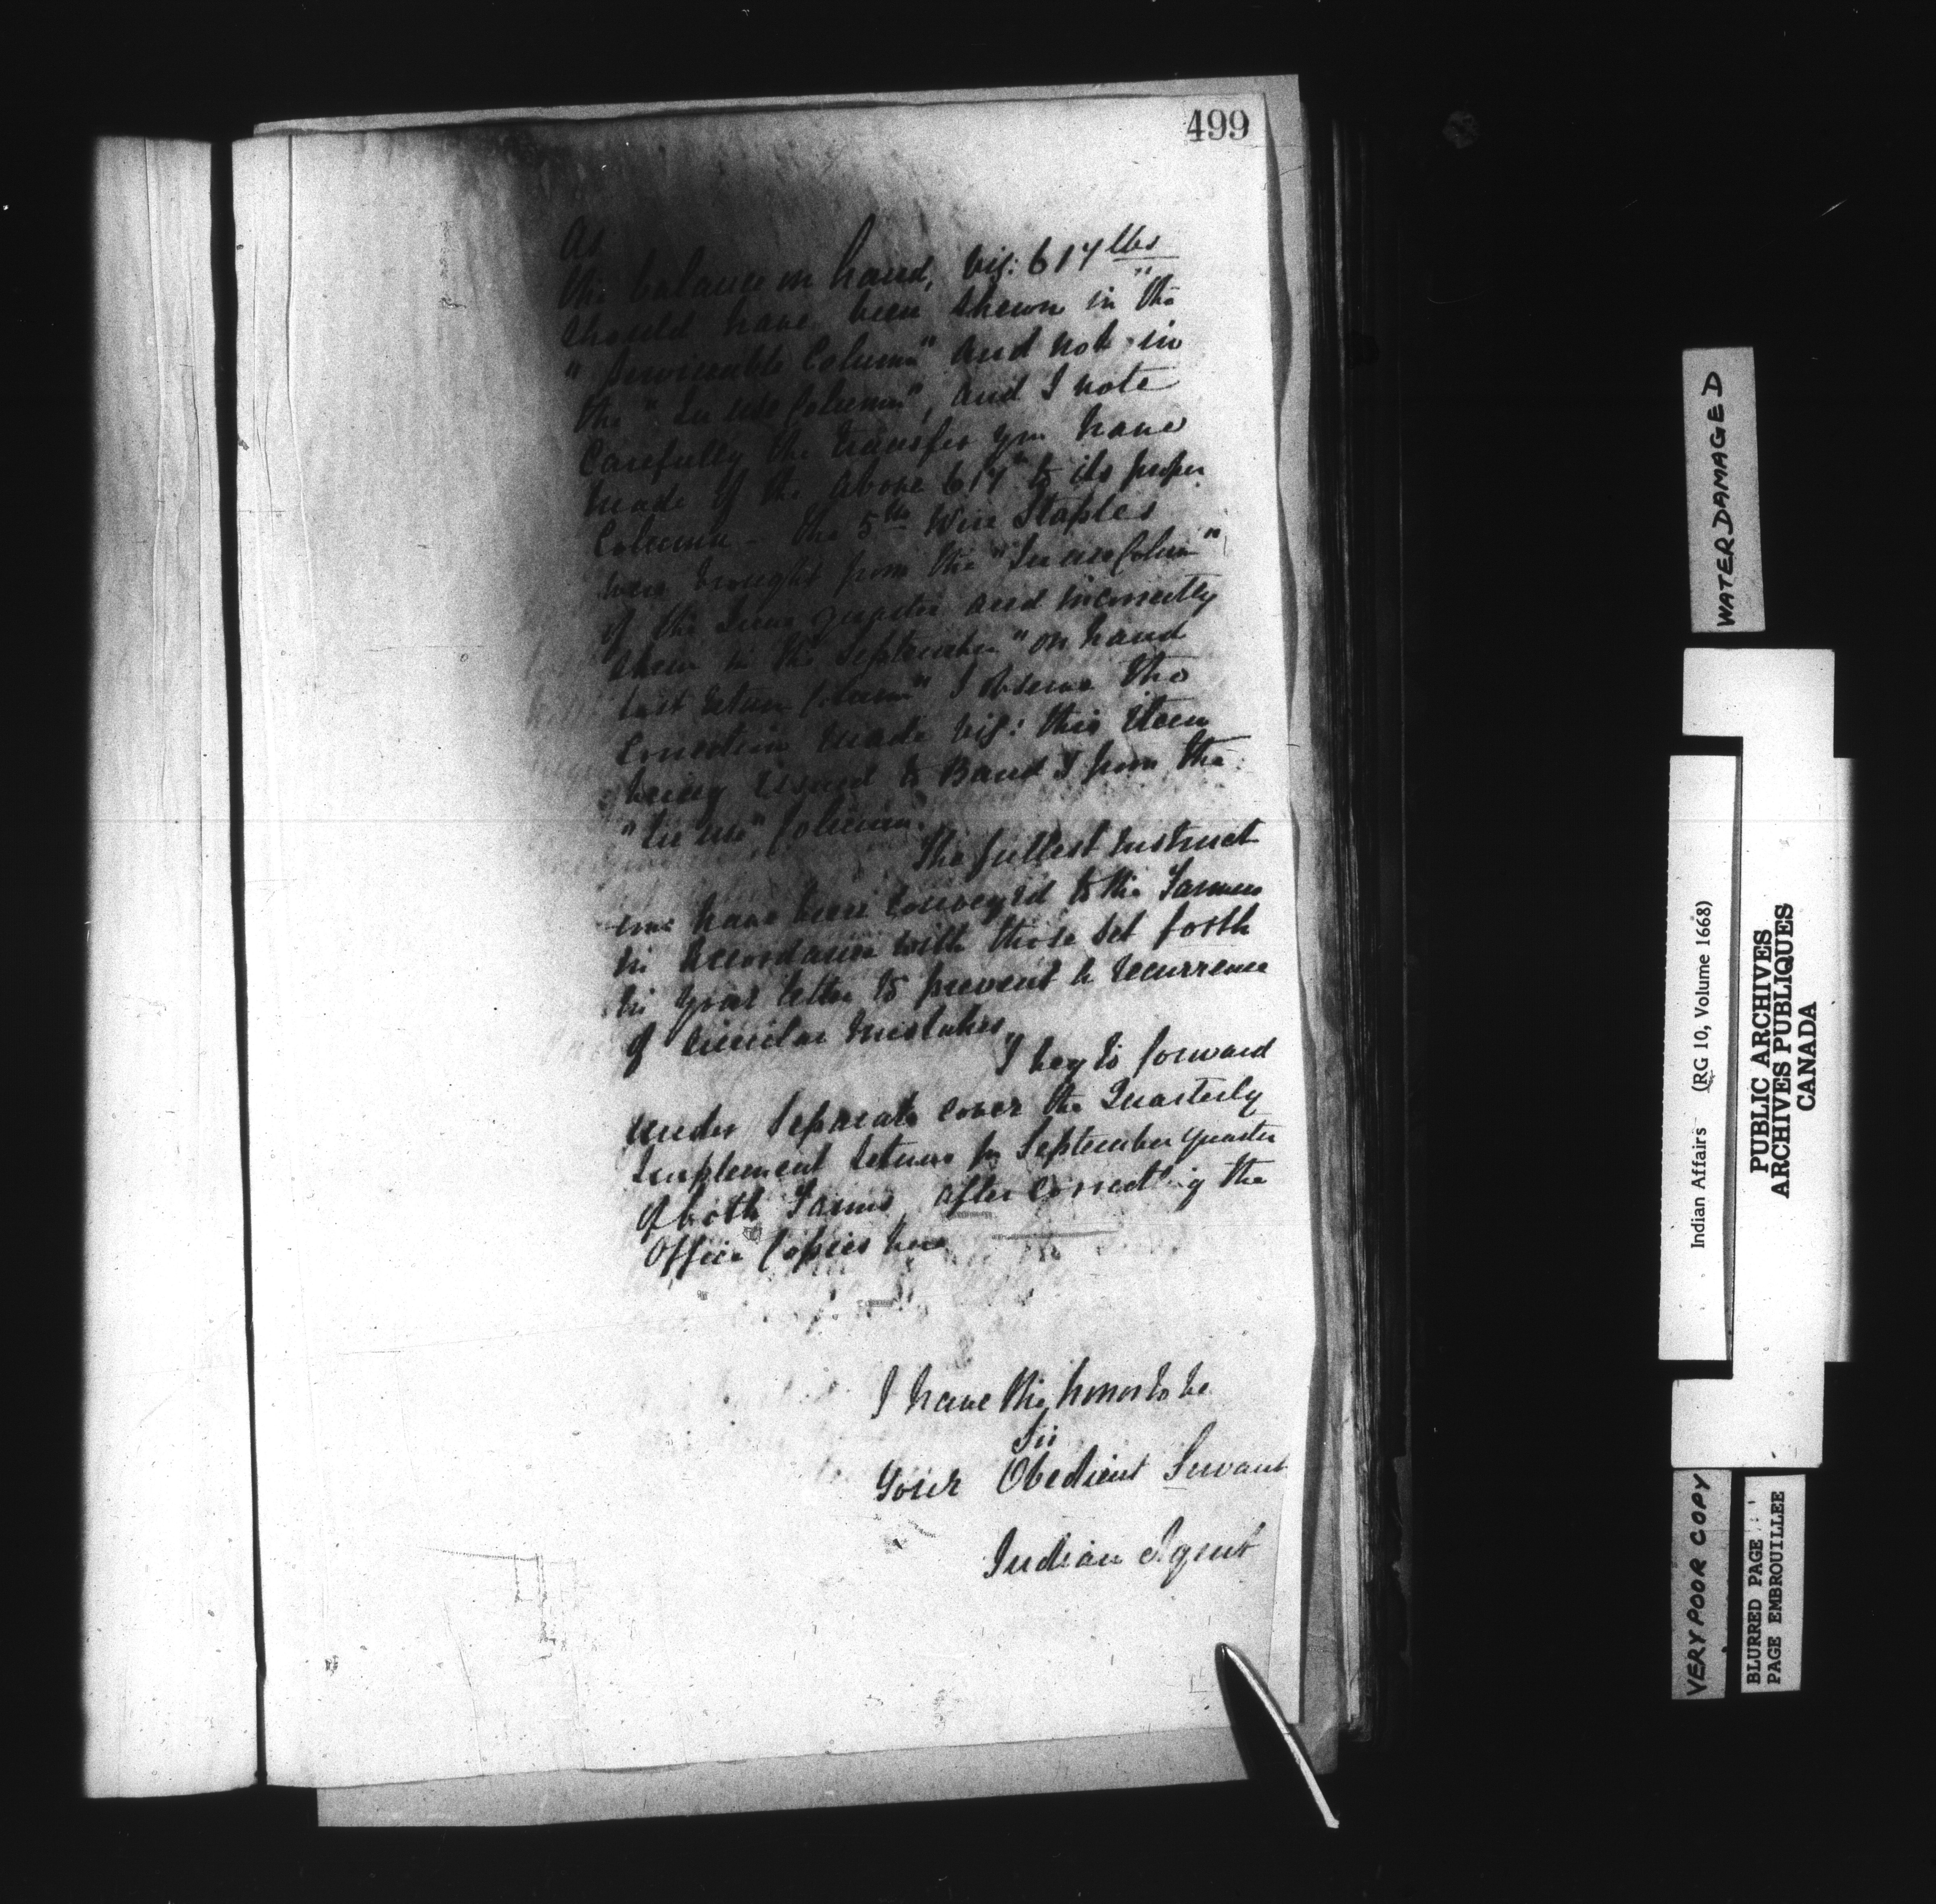 499
As
the balance on hand, viz: 617 lbs
should have been shewn in "the
"Serviceable Column" and not in
the "In use Column", and I note
Carefully the transfer you have
made of the above 617 to its proper
Column – the 5 lbs Wire Staples
were brought from the "In use Colum"
of the June quarter and incorrectly
shewn in the September "on hand
last return Column" I observe the
Correction made viz: this item
being issued to Band & from the
"In use" Column.
The fullest instruct
ions have been conveyed to the Farmers
in accordance with those set forth
in your letter to prevent a recurrence
of similar mistakes.
I beg to forward
under Separate cover the Quarterly
Implement returns for September quarter
of both Farms, after correcting the
Office Copies here
I have the honor to be
Sir
Your Obedient Servant
Indian Agent
WATER DAMAGED
Indian Affairs (RG 10, Volume 1668)
PUBLIC ARCHIVES
ARCHIVES PUBLIQUES
CANADA
VERY POOR COPY
BLURRED PAGE
PAGE EMBROUILLEE